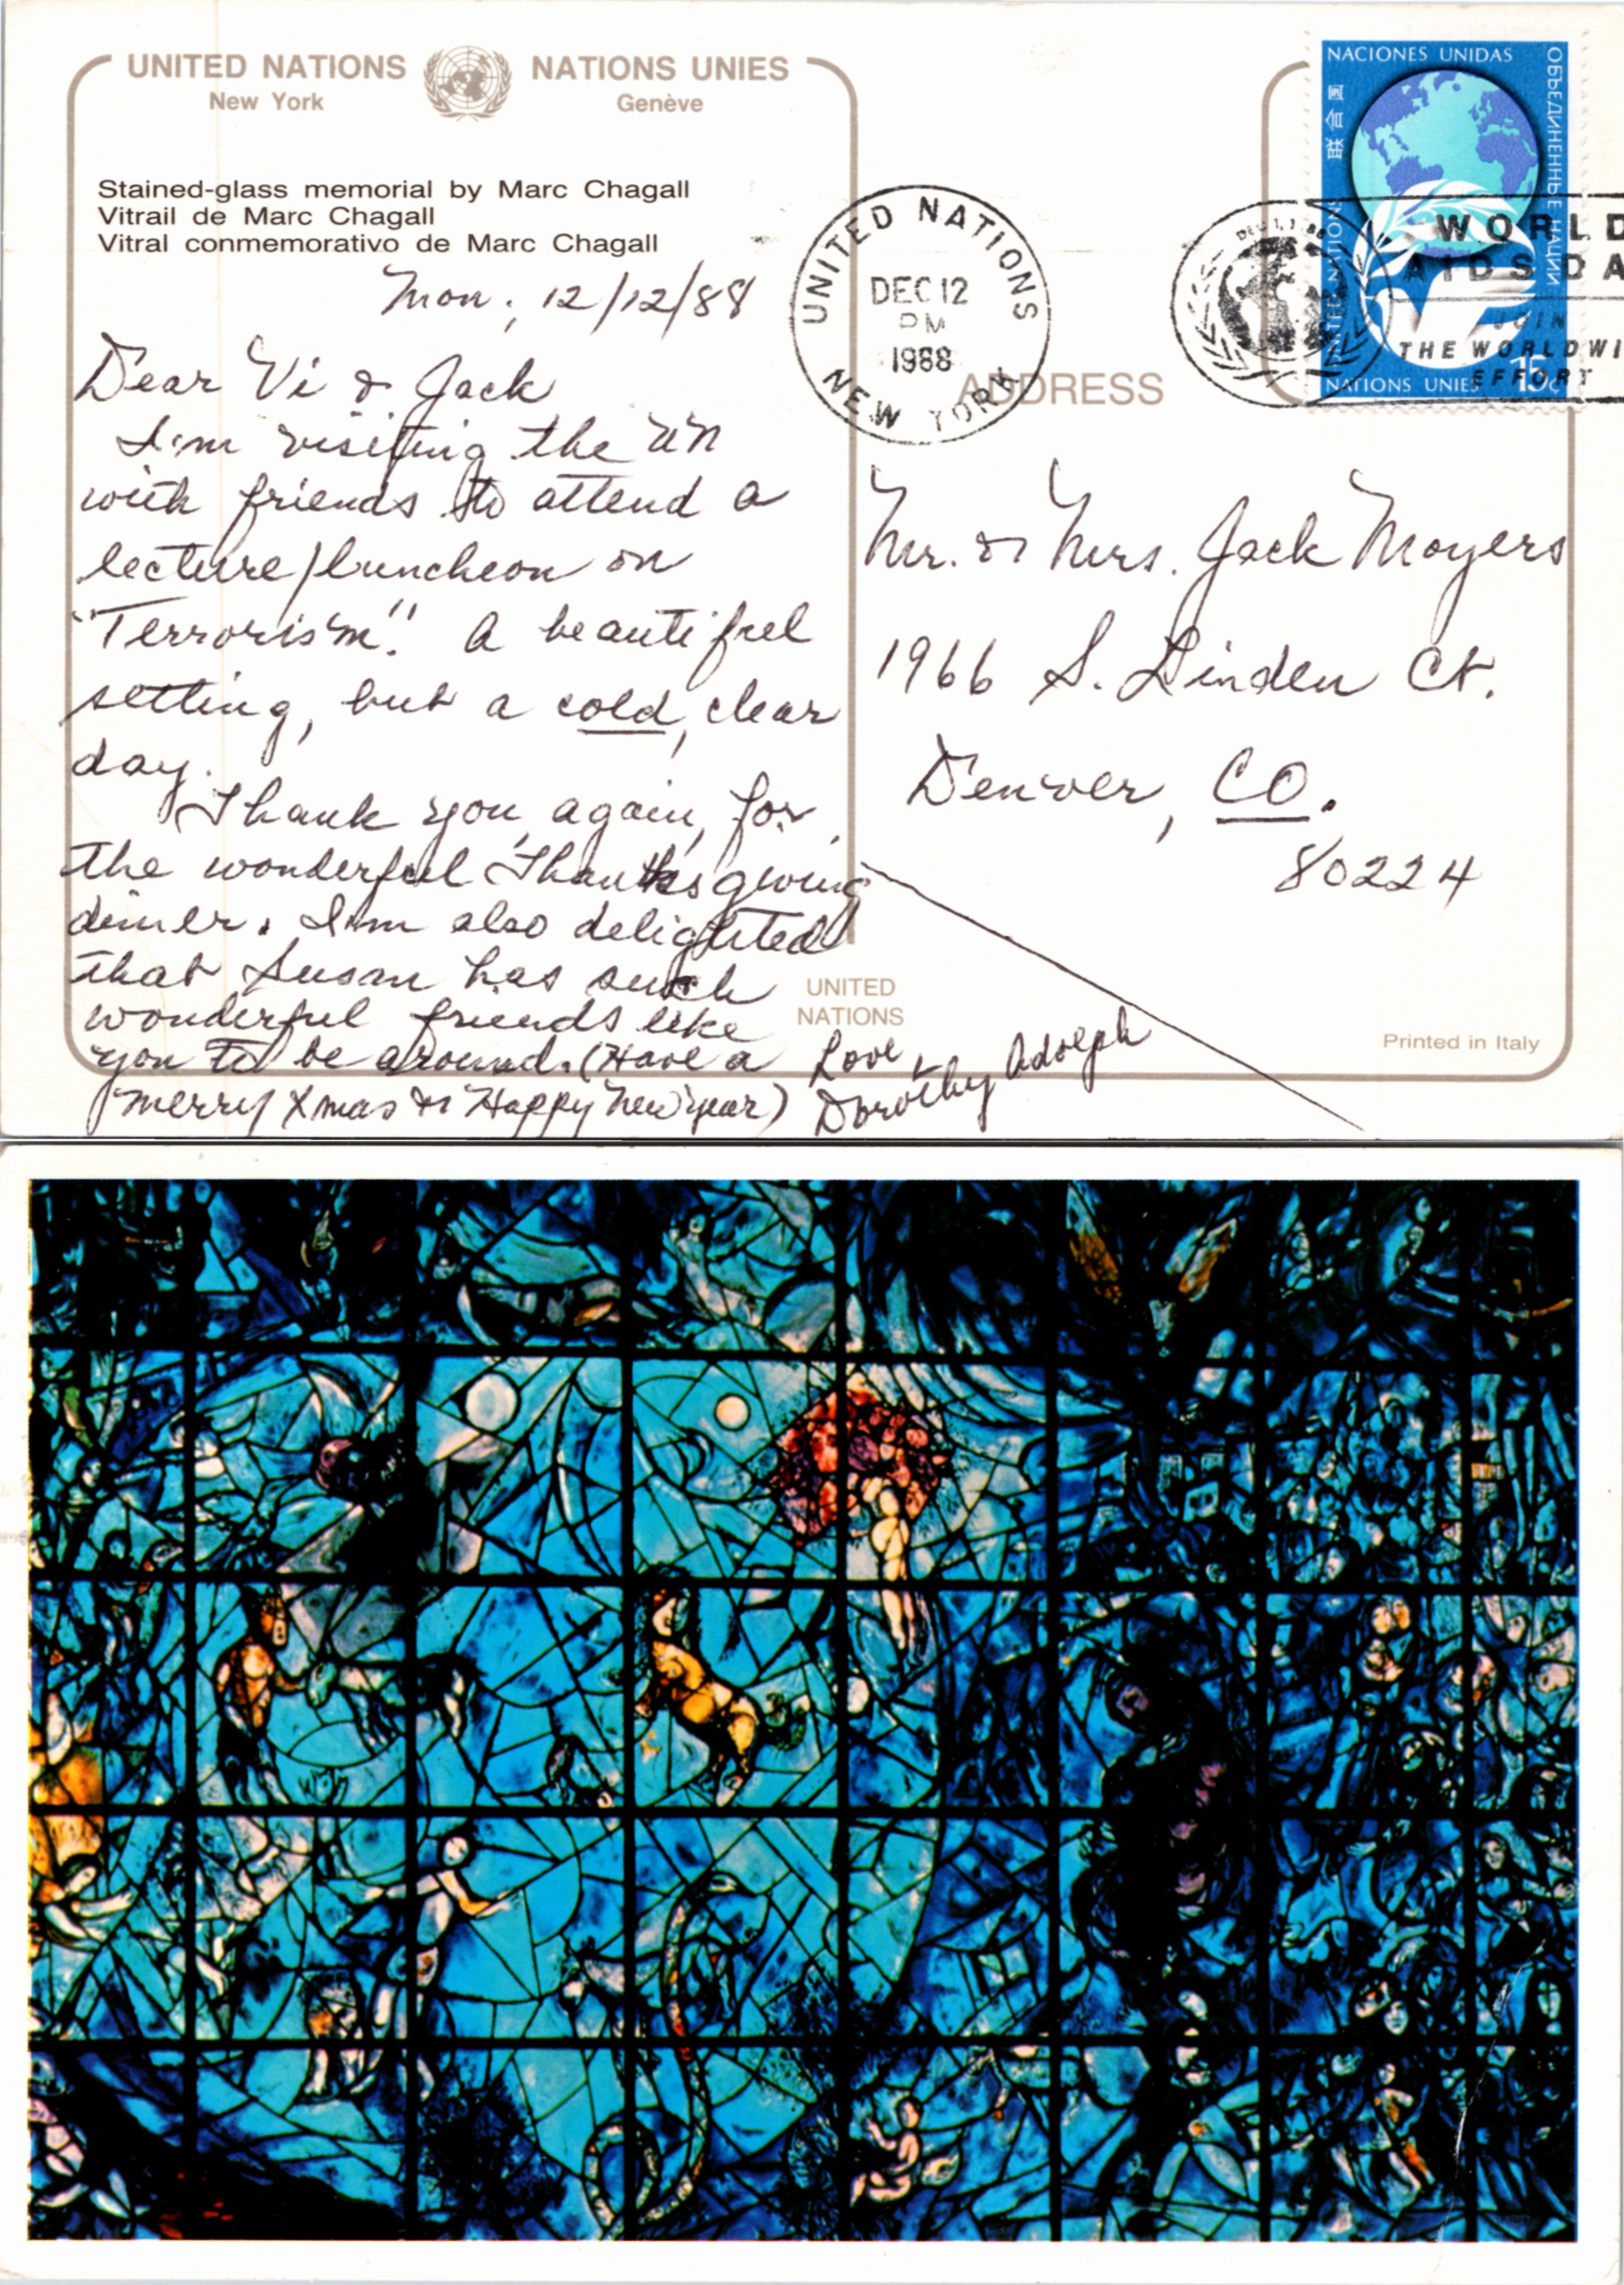 UNITED NATIONS
New York
NATIONS UNIES
Genève
Stained-glass memorial by Marc Chagall
Vitrail de Marc Chagall
Vitral conmemorativo de Marc Chagall
Mon, 12/12/88
Dear Vi & Jack
I'm visiting the UN
with friends to attend a
lecture/luncheon on
"Terrorism". A beautiful
setting, but a cold, clear
day.
Thank you, again, for
the wonderful Thanksgiving
dinner. I'm also delighted
that Susan has such
wonderful friends like
you to be around. (Have a
merry Xmas & Happy New Year)
Love,
Dorothy Adolph
UNITED NATIONS
DEC 12
PM
1988
NEW YORK
ADDRESS
NACIONES UNIDAS
ОБЪЕДИНЕННЫЕ НАЦИИ
联合国
UNITED NATIONS
NATIONS UNIES 15c
DEC 1, 1988
WORLD
AIDS DA
JOIN
THE WORLDWI
EFFORT
Mr. & Mrs. Jack Moyers
1966 S. Linden Ct.
Denver, CO.
80224
UNITED
NATIONS
Printed in Italy